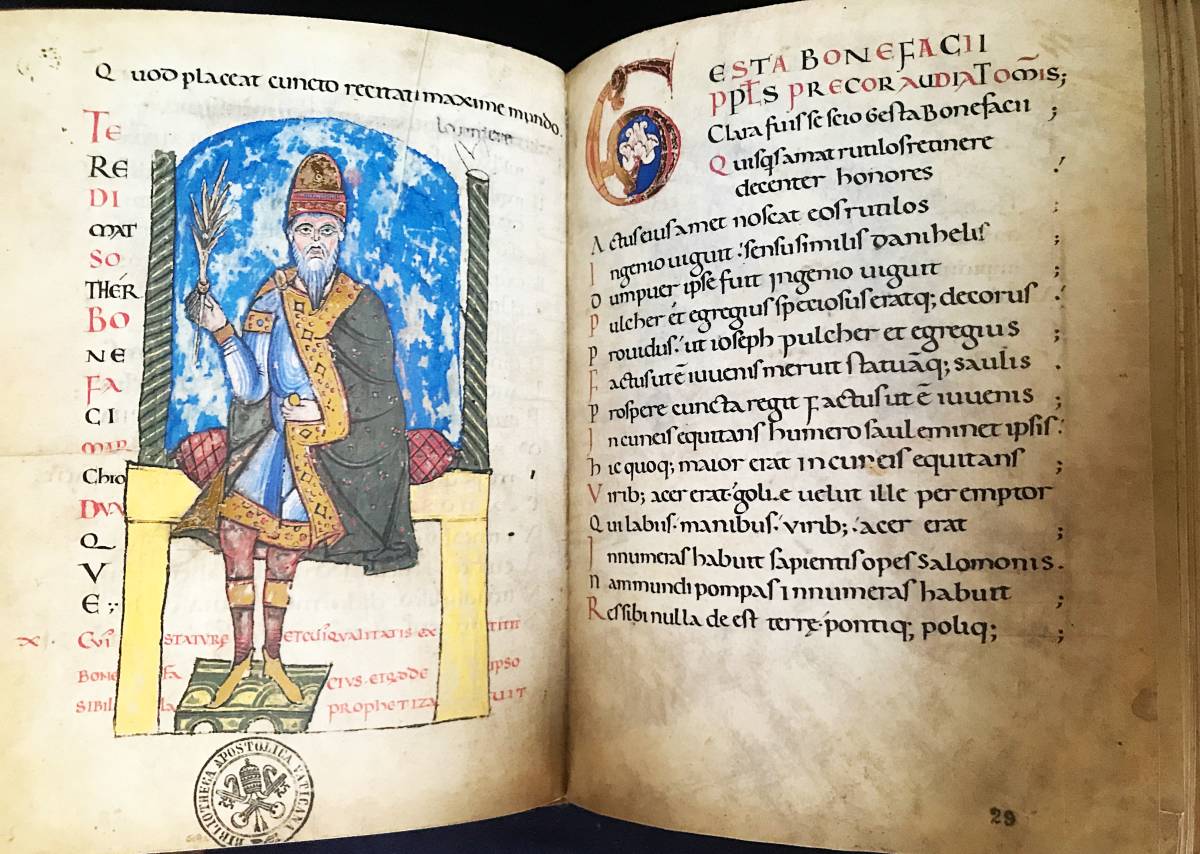 Quod placeat cuncto recitati maxime mundo.
TE
RE
DI
MAT
SO
THÉR
BO
NE
FA
CI
MAR
Chio
DVX
Q
V
E ;
CVI STATVRE ET CVI QVALITATIS EX TITIT
BONE FA CIVS ET QVOD E IPSO
SIBIL LA PROPHETIZA UIT
BIBLIOTHECA APOSTOLICA VATICANA
GESTA BONEFACII
PPTS PRECOR AUDIAT OMIS;
Clara fuisse scio Gesta Bonefacii ;
Quisqs amat rutilos retinere
decenter honores
Actus eius amet noscat eos rutilos
Ingenio uiguit: sensu similis danihelis ;
dum puer ipse fuit ingenio uiguit ;
Pulcher et egregius speciosus eratq; decorus
prouidus: ut ioseph pulcher et egregius ;
Factus ut ē iuuenis meruit statuāq; saulis .
prospere cuncta regit Factus ut ē iuuenis ;
In cuneis equitans humero saul eminet ipsis:
hic quoq; maior erat in cuneis equitans ;
Virib; acer erat golie uelut ille peremptor
Qui labus: manibus: virib;: acer erat ;
Innumeras habuit sapientis opes Salomonis.
nam mundi pompas innumeras habuit ;
Res sibi nulla deest terre pontiq; poliq; ;
29